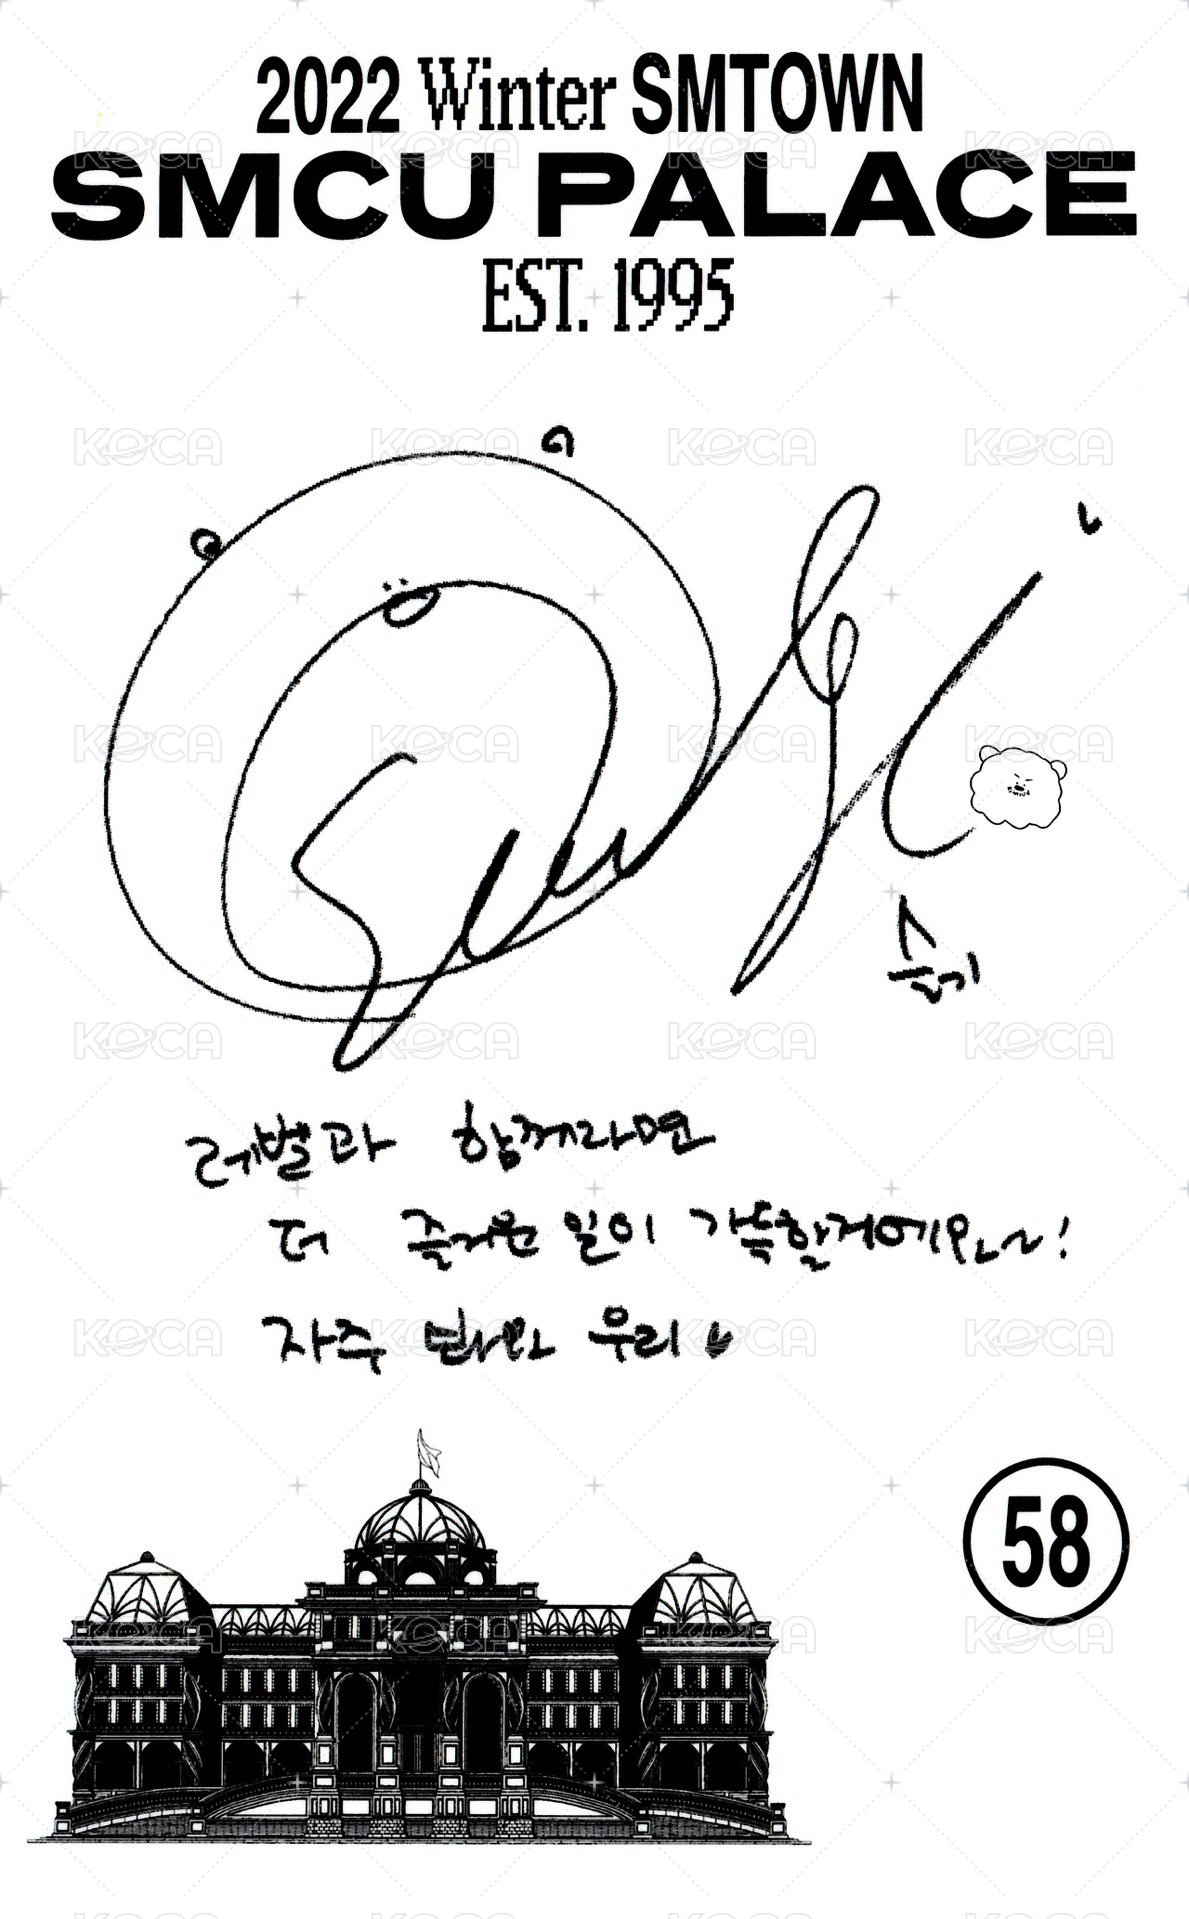 2022 Winter SMTOWN
SMCU PALACE
EST. 1995
슬기
레벨과 함께라면
더 즐거운 일이 가득할거에요~!
자주 봐요 우리
58
KOCA